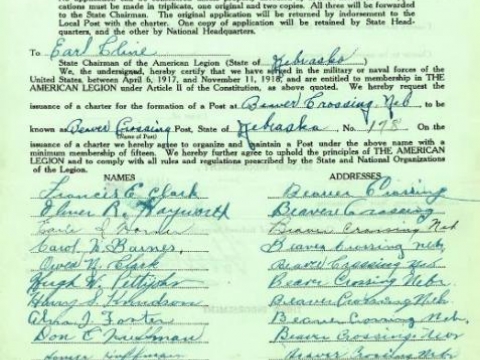 cations must be made in triplicate, one original and two copies. All three will be forwarded
to the State Chairman. The original application will be returned by indorsement to the
Local Post with the charter. One copy of application will be retained by State Head-
quarters, and the other by National Headquarters.
To Earl Cline
State Chairman of the American Legion (State of Nebraska)
We, the undersigned, hereby certify that we have served in the military or naval forces of the
United States between April 6, 1917, and November 11, 1918, and are entitled to membership in THE
AMERICAN LEGION under Article II of the Constitution, as above quoted. We hereby request the
issuance of a charter for the formation of a Post at Beaver Crossing Neb to be
known as Beaver Crossing Post, State of Nebraska, No. 198. On the
(Name of Post)
issuance of a charter we hereby agree to organize and maintain a Post under the above name with a
minimum membership of fifteen. We hereby further agree to uphold the principles of THE AMERICAN
LEGION and to comply with all rules and regulations prescribed by the State and National Organizations
of the Legion.
NAMES ADDRESSES
Francis E. Clark Beaver Crossing
Oliver R. Hayworth Beaver Crossing
Earle Beaver Crossing Neb
Carol W. Barnes Beaver Crossing Neb.
Owen N. Clark Beaver Crossing Neb
Hugh W. Beaver Crossing Nebr.
Harry S. Knudson Beaver Crossing Nebr.
J. Foster Beaver Crossing Neb.
Don C. Beaver Crossing Nebr
Beaver Crossing Neb